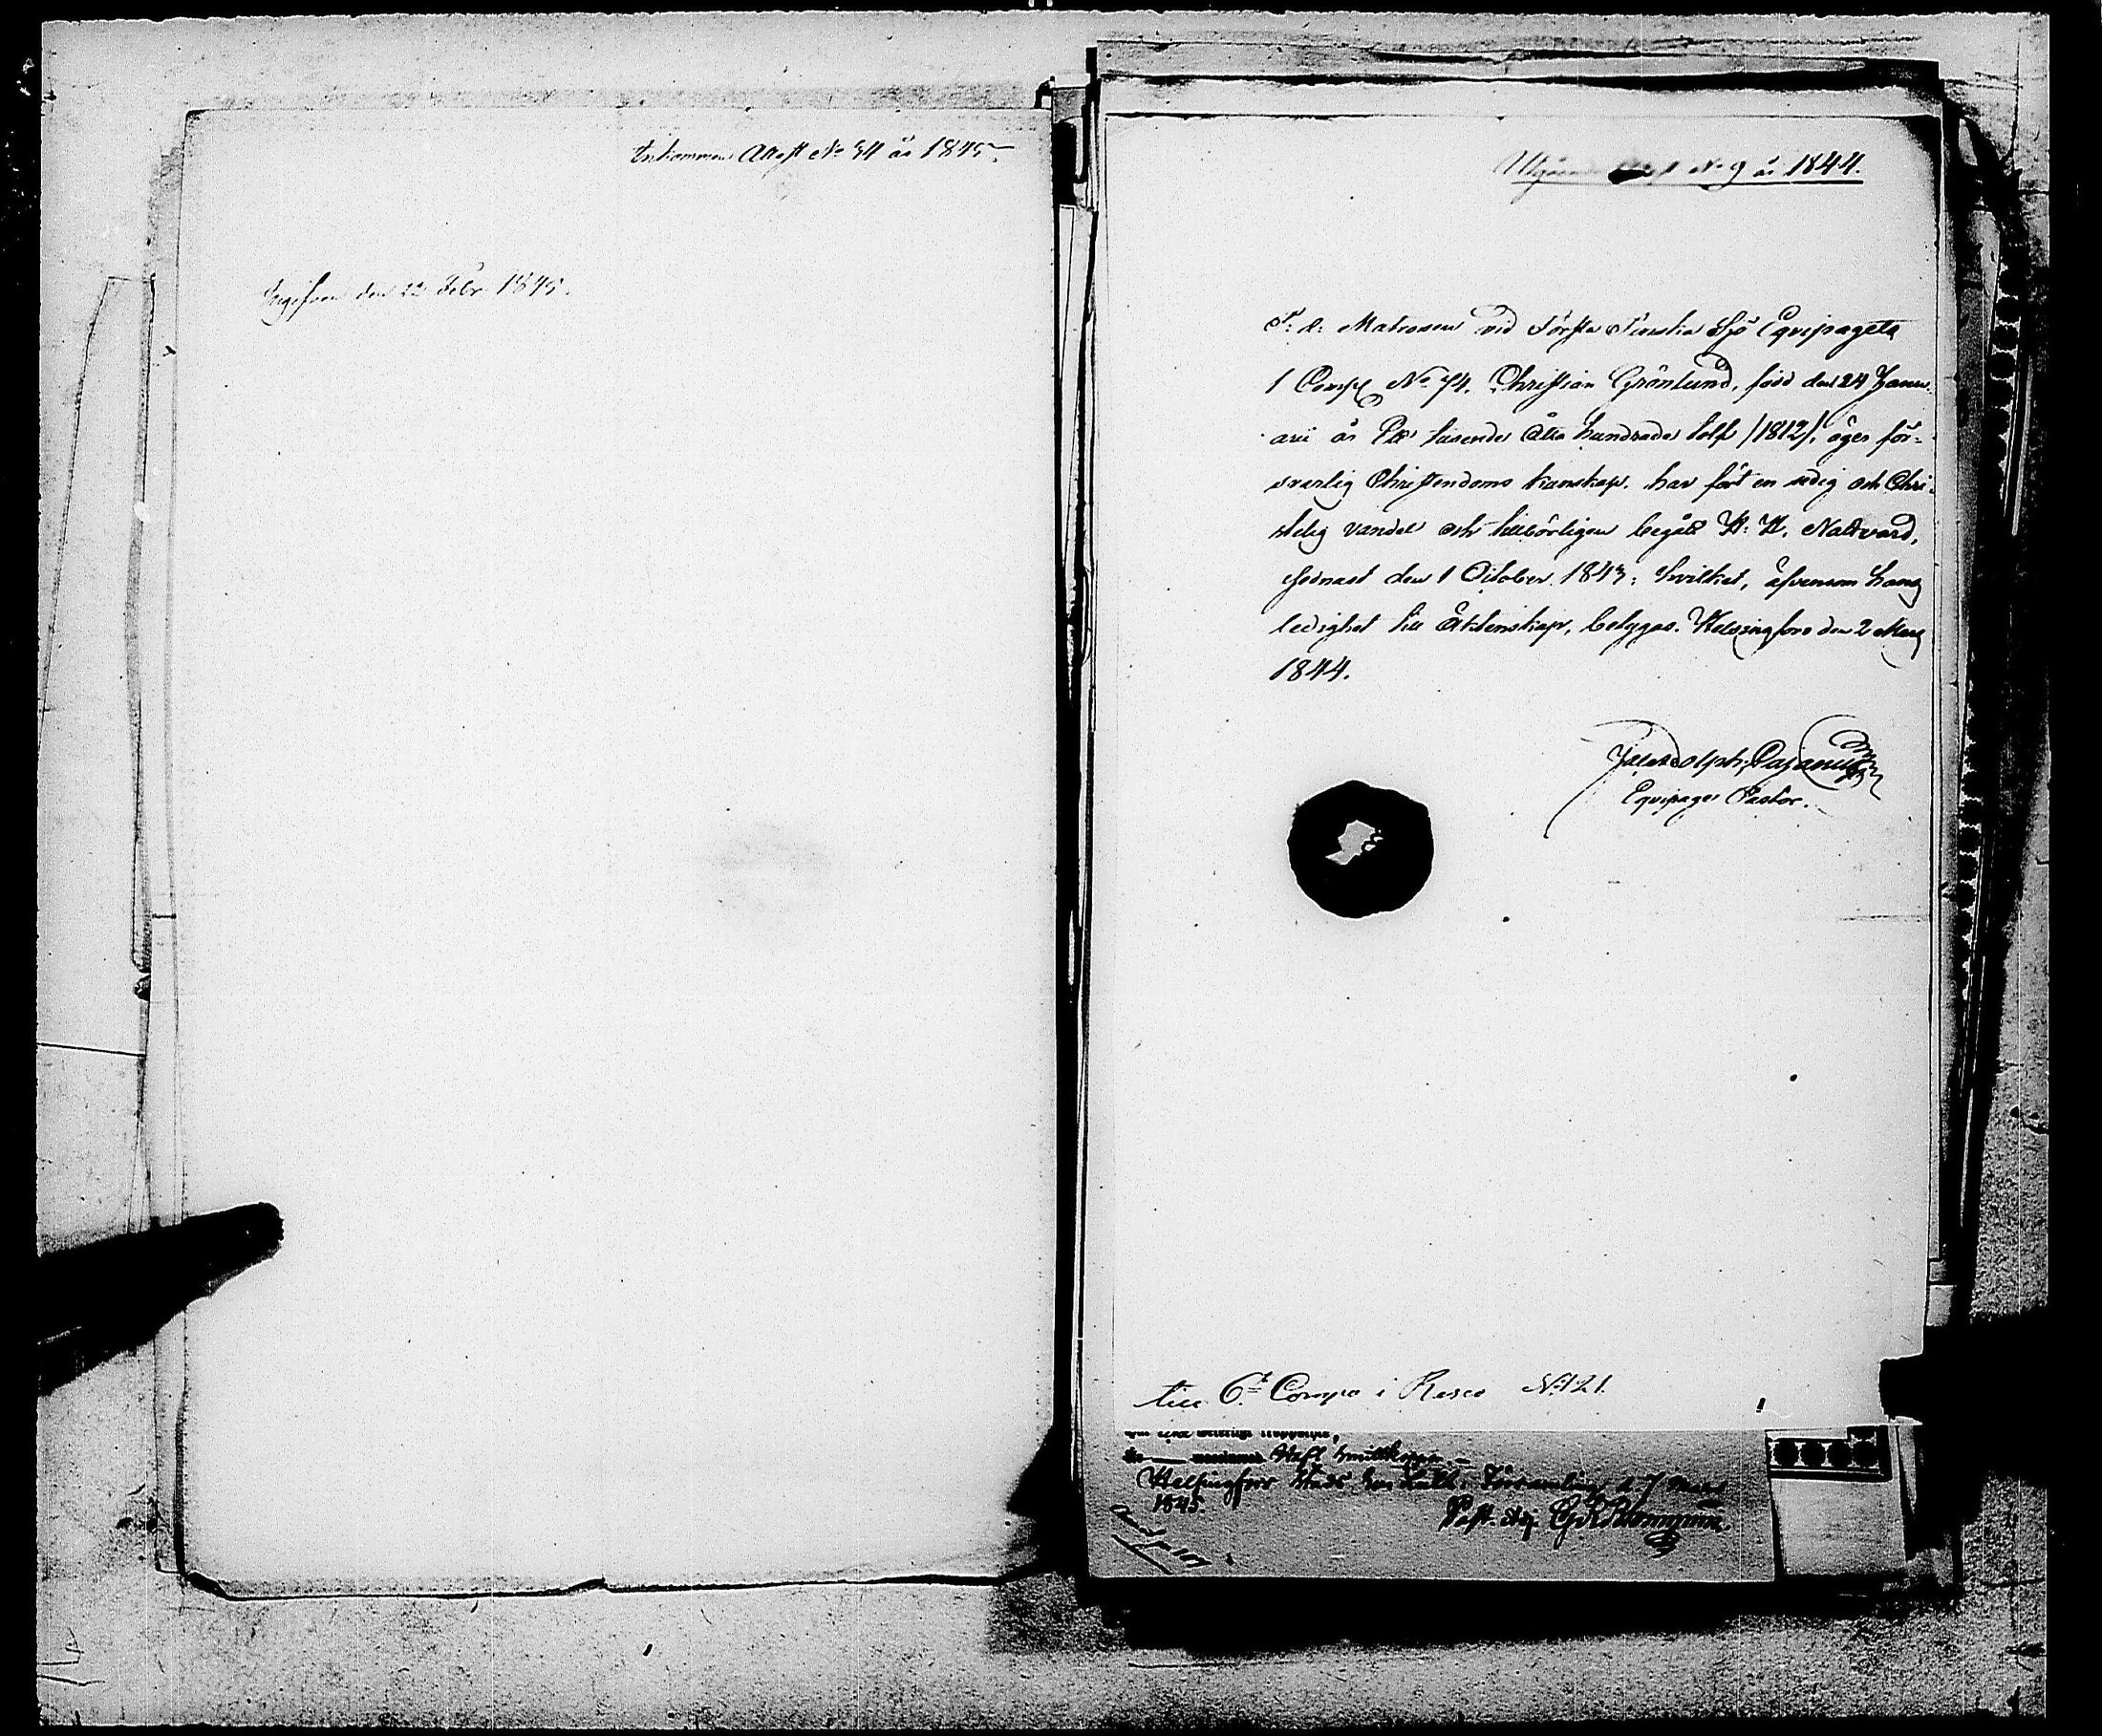 Inkommen Attest No 34 år 1845
Ingifven den 22 Febr. 1845.
Utgående No 9 år 1844.
F: d: Matrosen vid Första Finska Sjö Equipagets
1 Comp No 74. Christian Grönlund, född den 24 Janu-
arii år Ett tusende åtta hundrade tolf /1812/, äger för-
svarlig Christendoms kunskap, har fört en sedig och Chri-
stelig vandel och tillbörligen begått H: H. Nattvard,
sednast den 1 October 1843; hvilket, äfvensom hans
ledighet till Äktenskap, betygas. Helsingfors den 2 Maj
1844.
Equipage Pastor.
till 6te Comp i Reserv No 121.
Helsingfors Stads Förs. d. 7
1845.
Past. Adj.